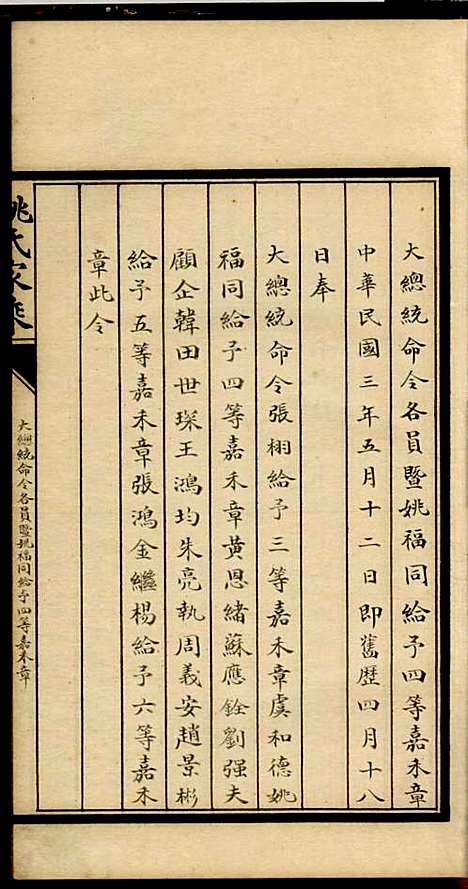 大總統命令各員暨姚福同給予四等嘉禾章
中華民國三年五月十二日即舊歷四月十八
日奉
大總統命令張栩給予三等嘉禾章虞和德姚
福同給予四等嘉禾章黃恩緒蘇應銓劉强夫
顧企韓田世琛王鴻均朱亮執周義安趙景彬
給予五等嘉禾章張鴻金繼楊給予六等嘉禾
章此令
姚氏家乘
大總統命令各員暨姚福同給予四等嘉禾章